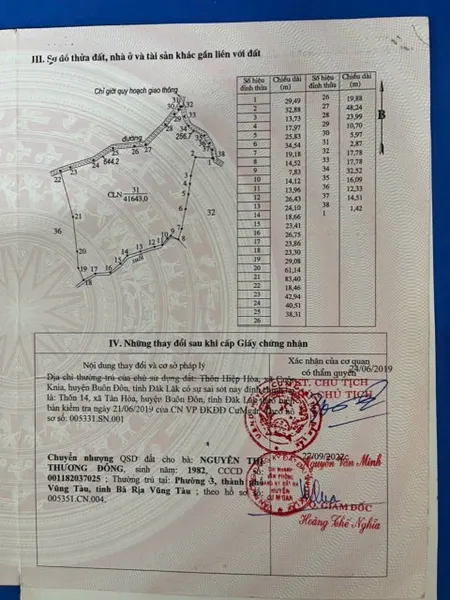 III. Sơ đồ thửa đất, nhà ở và tài sản khác gắn liền với đất
Chỉ giới quy hoạch giao thông
đường
644.2
256.7
CLN 31
41643,0
36
32
suối
B
Số hiệu đỉnh thửa Chiều dài (m) Số hiệu đỉnh thửa Chiều dài (m)
1 29,49 26 19,88
2 32,88 27 48,24
3 13,73 28 23,99
4 17,97 29 10,70
5 25,83 30 5,97
6 34,54 31 2,87
7 19,18 32 17,78
8 14,52 33 17,78
9 7,83 34 32,52
10 14,12 35 16,09
11 13,96 36 12,33
12 26,43 37 14,51
13 24,10 38 1,42
14 18,66 1
15 23,41
16 26,75
17 23,86
18 23,30
19 29,08
20 61,14
21 83,40
22 18,46
23 42,94
24 40,51
25 38,31
26
IV. Những thay đổi sau khi cấp Giấy chứng nhận
Nội dung thay đổi và cơ sở pháp lý
Xác nhận của cơ quan có thẩm quyền
Địa chỉ thường trú của chủ sử dụng đất: Thôn Hiệp Hòa, xã
Knia, huyện Buôn Đôn, tỉnh Đắk Lắk có sự sai sót nay đính chính
là: Thôn 14, xã Tân Hòa, huyện Buôn Đôn, tỉnh Đắk Lắk theo biên
bản kiểm tra ngày 21/06/2019 của CN VP ĐKĐĐ CưMgar, theo hồ
sơ số: 005331.SN.001
24/06/2019
CHỦ TỊCH
CHỦ TỊCH
Nguyễn Văn Minh
Chuyển nhượng QSD đất cho bà: NGUYỄN THỊ
THƯƠNG ĐÔNG, sinh năm: 1982, CCCD
001182037025; Thường trú tại: Phường 3, thành phố
Vũng Tàu, tỉnh Bà Rịa Vũng Tàu; theo hồ sơ số:
005351.CN.004.
22/09/2022
CHI NHÁNH
VĂN PHÒNG
HUYỆN
CƯ M'GAR
GIÁM ĐỐC
Hoàng Thế Nghĩa